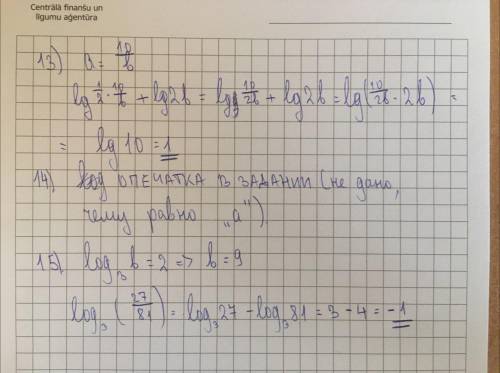 Centrālā finanšu un
līgumu aģentūra
13) a = 10/b
lg 1/2 · 10/b + lg 2b = lg 10/2b + lg 2b = lg(10/2b · 2b) =
= lg 10 = 1
14) ОПЕЧАТКА В ЗАДАНИИ (не дано,
чему равно „а")
15) log₃ b = 2 => b = 9
log₃ (27/81) = log₃ 27 - log₃ 81 = 3 - 4 = -1